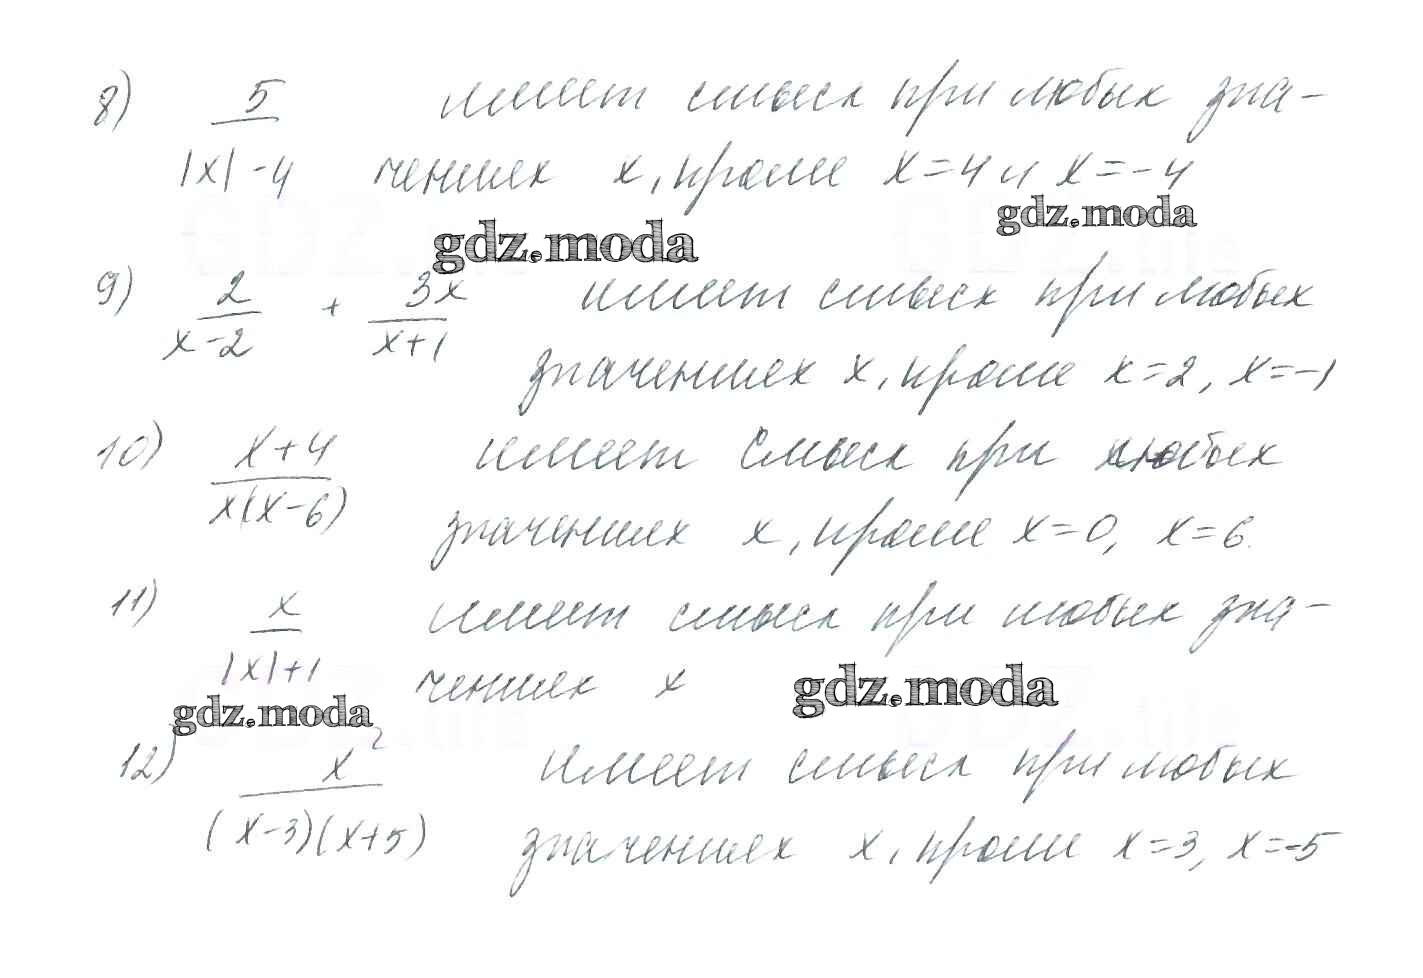 8) 5 имеет смысл при любых зна-
|x|-4 чениях x, кроме x=4 и x=-4
gdz.moda gdz.moda
9) 2 + 3x имеет смысл при любых
x-2 x+1
значениях x, кроме x=2, x=-1
10) x+4 имеет смысл при любых
x(x-6) значениях x, кроме x=0, x=6.
11) x имеет смысл при любых зна-
|x|+1 чениях x
gdz.moda gdz.moda
12) x² имеет смысл при любых
(x-3)(x+5) значениях x, кроме x=3, x=-5